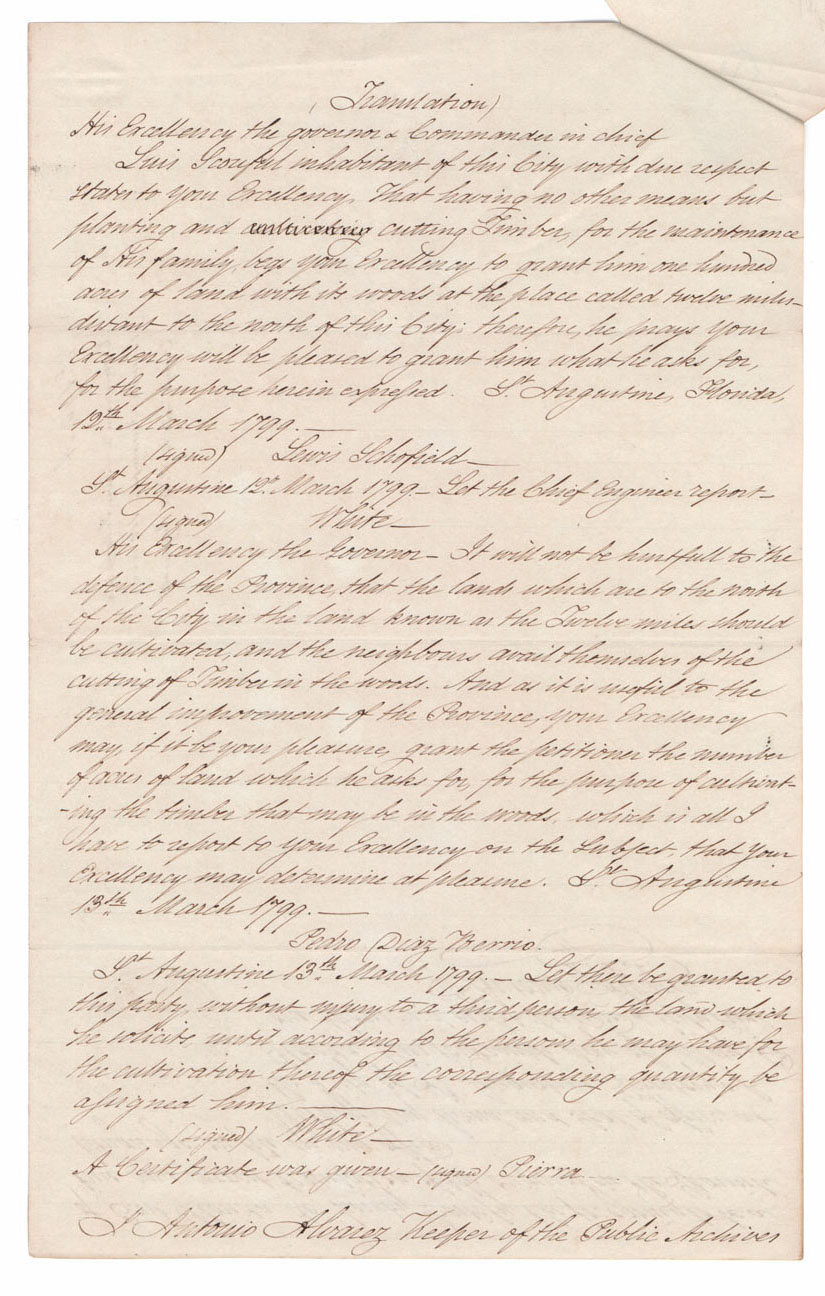 (Translation)
His Excellency the governor & Commander in chief
Luis Scouful inhabitant of this City with due respect
states to your Excellency, That having no other means but
planting and cutting Timber, for the maintenance
of His family, begs your Excellency to grant him one hundred
acres of land with its woods at the place called twelve miles
distant to the north of this City; therefore, he prays your
Excellency will be pleased to grant him what he asks for,
for the purpose herein expressed. St. Augustine, Florida,
12th March 1799.—
(signed) Lewis Schofield—
St. Augustine 12th March 1799— Let the Chief Engineer report—
(signed) White—
His Excellency the Governor— It will not be hurtfull to the
defence of the Province, that the lands which are to the north
of the City in the land known as the Twelve miles should
be cultivated, and the neighbours avail themselves of the
cutting of Timber in the woods. And as it is useful to the
general improvement of the Province, your Excellency
may, if it be your pleasure, grant the petitioner the number
of acres of land which he asks for, for the purpose of cultivat-
-ing the timber that may be in the woods, which is all I
have to report to your Excellency on the Subject, that your
Excellency may determine at pleasure. St. Augustine
13th March 1799.—
Pedro Diaz Berrio.
St. Augustine 13th March 1799.— Let there be granted to
this party, without injury to a third person, the land which
he solicits until according to the persons he may have for
the cultivation thereof the corresponding quantity be
assigned him.—
(signed) White—
A Certificate was given— (signed) Pierra
I Antonio Alvarez Keeper of the Public Archives